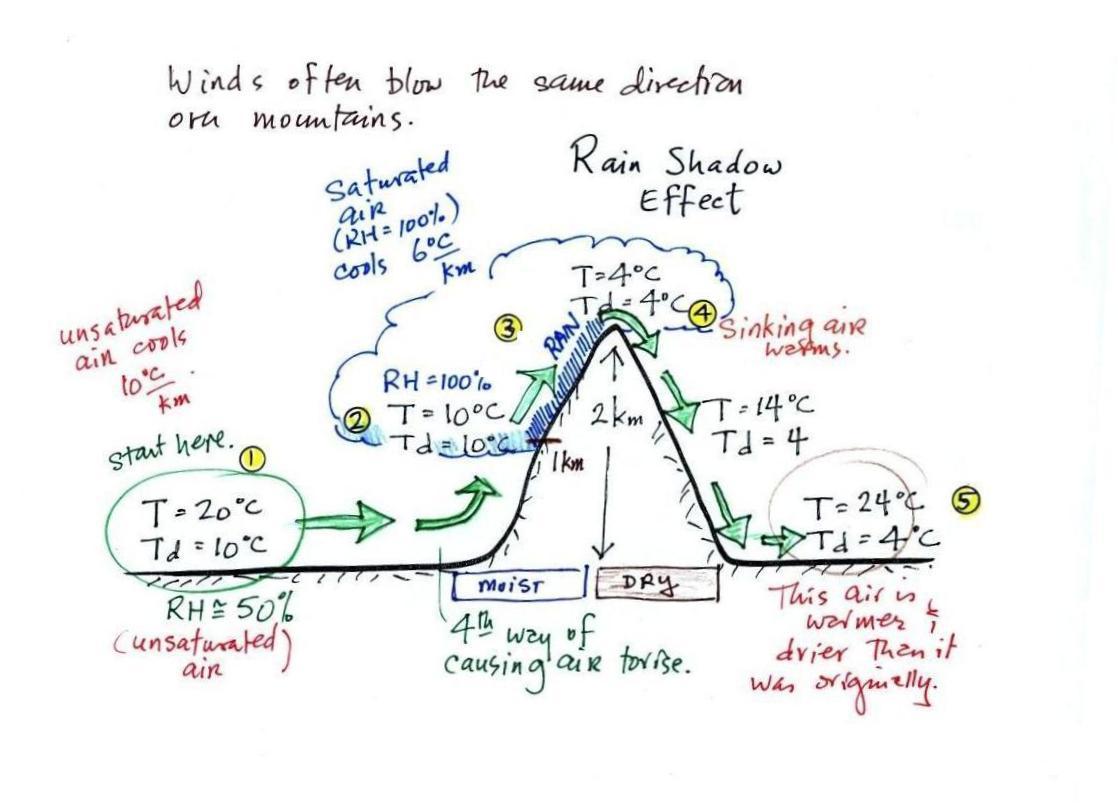 Winds often blow the same direction
over mountains.
Rain Shadow
Effect
Saturated
air
(RH = 100%)
cools 6°C
km
unsaturated
air cools
10°C
km
T = 4°C
Td = 4°C
4
3
RAIN
Sinking air
warms.
RH = 100%
2
T = 10°C
Td = 10°C
2 km
1 km
T = 14°C
Td = 4
start here.
1
T = 20°C
Td = 10°C
T = 24°C
Td = 4°C
5
MOIST
DRY
RH ≅ 50%
(unsaturated)
air
4th way of
causing air to rise.
This air is
warmer &
drier than it
was originally.